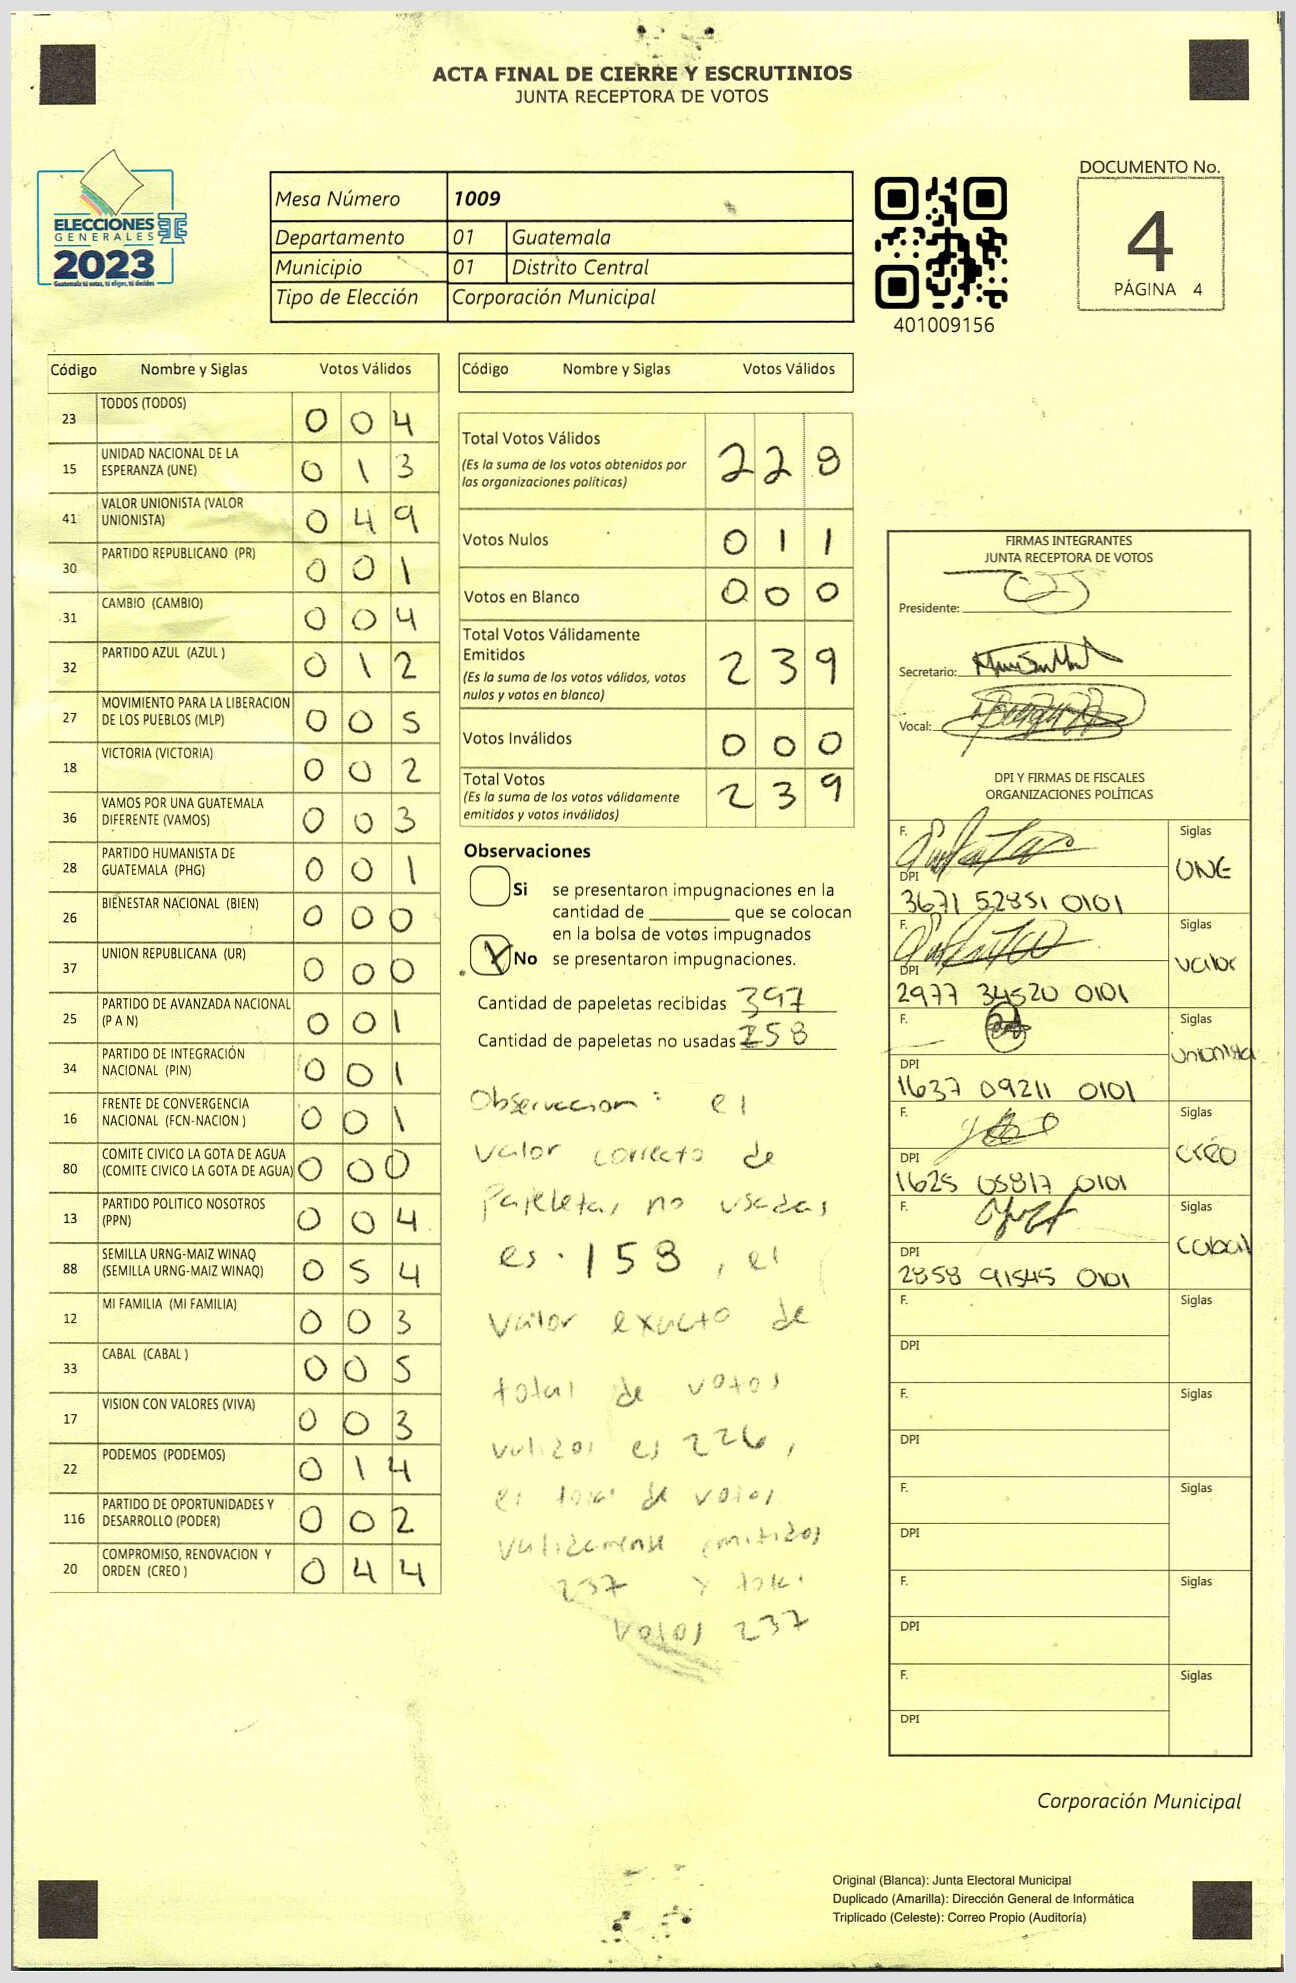 ACTA FINAL DE CIERRE Y ESCRUTINIOS
JUNTA RECEPTORA DE VOTOS
ELECCIONES
GENERALES
2023
Guatemala tú votas, tú eliges, tú decides
Mesa Número 1009
Departamento 01 Guatemala
Municipio 01 Distrito Central
Tipo de Elección Corporación Municipal
401009156
DOCUMENTO No.
4
PÁGINA 4
Código Nombre y Siglas Votos Válidos
23 TODOS (TODOS) 0 0 4
15 UNIDAD NACIONAL DE LA ESPERANZA (UNE) 0 1 3
41 VALOR UNIONISTA (VALOR UNIONISTA) 0 4 9
30 PARTIDO REPUBLICANO (PR) 0 0 1
31 CAMBIO (CAMBIO) 0 0 4
32 PARTIDO AZUL (AZUL ) 0 1 2
27 MOVIMIENTO PARA LA LIBERACION DE LOS PUEBLOS (MLP) 0 0 5
18 VICTORIA (VICTORIA) 0 0 2
36 VAMOS POR UNA GUATEMALA DIFERENTE (VAMOS) 0 0 3
28 PARTIDO HUMANISTA DE GUATEMALA (PHG) 0 0 1
26 BIENESTAR NACIONAL (BIEN) 0 0 0
37 UNION REPUBLICANA (UR) 0 0 0
25 PARTIDO DE AVANZADA NACIONAL (P A N) 0 0 1
34 PARTIDO DE INTEGRACIÓN NACIONAL (PIN) 0 0 1
16 FRENTE DE CONVERGENCIA NACIONAL (FCN-NACION ) 0 0 1
80 COMITE CIVICO LA GOTA DE AGUA (COMITE CIVICO LA GOTA DE AGUA) 0 0 0
13 PARTIDO POLITICO NOSOTROS (PPN) 0 0 4
88 SEMILLA URNG-MAIZ WINAQ (SEMILLA URNG-MAIZ WINAQ) 0 5 4
12 MI FAMILIA (MI FAMILIA) 0 0 3
33 CABAL (CABAL ) 0 0 5
17 VISION CON VALORES (VIVA) 0 0 3
22 PODEMOS (PODEMOS) 0 1 4
116 PARTIDO DE OPORTUNIDADES Y DESARROLLO (PODER) 0 0 2
20 COMPROMISO, RENOVACION Y ORDEN (CREO ) 0 4 4
Código Nombre y Siglas Votos Válidos
Total Votos Válidos 2 2 8
(Es la suma de los votos obtenidos por
las organizaciones políticas)
Votos Nulos 0 1 1
Votos en Blanco 0 0 0
Total Votos Válidamente
Emitidos 2 3 9
(Es la suma de los votos válidos, votos
nulos y votos en blanco)
Votos Inválidos 0 0 0
Total Votos 2 3 9
(Es la suma de los votos válidamente
emitidos y votos inválidos)
Observaciones
Si se presentaron impugnaciones en la
cantidad de ________ que se colocan
en la bolsa de votos impugnados
No se presentaron impugnaciones.
Cantidad de papeletas recibidas 397
Cantidad de papeletas no usadas 258
Observacion: el
valor correcto de
papeletas no usadas
es 158, el
valor exacto de
total de votos
validos es 226,
el total de votos
validamense emitidos
237 y total
votos 237
FIRMAS INTEGRANTES
JUNTA RECEPTORA DE VOTOS
Presidente:
Secretario:
Vocal:
DPI Y FIRMAS DE FISCALES
ORGANIZACIONES POLÍTICAS
F. Siglas
UNE
DPI
3671 52851 0101
F. Siglas
valor
DPI
2977 34520 0101
F. Siglas
unionista
DPI
1637 09211 0101
F. Siglas
creo
DPI
1625 05817 0101
F. Siglas
cabal
DPI
2858 91545 0101
F. Siglas
DPI
F. Siglas
DPI
F. Siglas
DPI
F. Siglas
DPI
F. Siglas
DPI
Corporación Municipal
Original (Blanca): Junta Electoral Municipal
Duplicado (Amarilla): Dirección General de Informática
Triplicado (Celeste): Correo Propio (Auditoría)